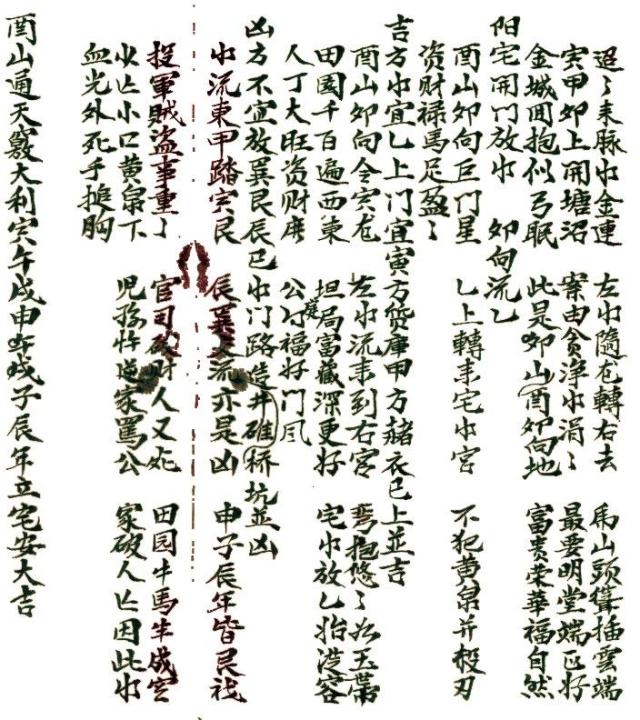 迢〻来脉水金連 左水隨龙轉右去 馬山頭聳插雲端
寅甲卯上開塘沼 案由贪淨水涓〻 最要明堂端正好
金城囬抱似弓眠 此是卯山酉卯向地 富贵荣華福自然
阳宅開门放水 卯向流乙
酉山卯向巨门星 乙上轉来宅水宫 不犯黄泉并殺刃
资财禄馬足盈〻
吉方水宜乙上门宜寅方货庫甲方赭衣巳上並吉
酉山卯向合寅龙 左水流来到右宫 弯抱悠〻如玉带
田園千百遍西東 坦局富藏深更好 宅水放乙始洩容
人丁大旺资财 公福好门风
凶方不宜放巽艮辰巳水门路造井碓桥坑並凶
水流東甲踏艮 辰巽流亦是凶 申子辰年皆艮祸
投軍賊盗事重〻 官司破财人又死 田园牛馬半成空
水亡小口黄泉下 児孫忤逆家罵公 家破人亡因此水
血光外死手搥胸
酉山通天竅大利寅午戌申戌子辰年立宅安大吉